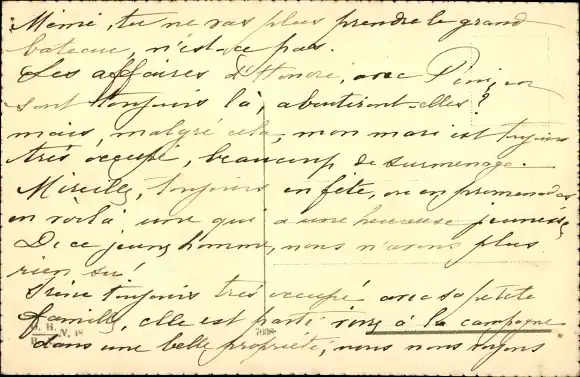 Mémé, tu ne vas plus prendre le grand
bateau, n'est-ce pas.
Les affaires d'Honoré, avec
sont toujours là, aboutiront-elles?
mais, malgré cela, mon mari est toujours
très occupé, beaucoup de surmenage.
Mireille, toujours en fête, ou en promenades
en voilà une qui a une heureuse jeunesse
De ce jeune homme, nous n'avons plus
rien su!
Irène toujours très occupé avec sa petite
famille, elle est parti à la campagne
dans une belle propriété, nous nous voyons
N. 48
7698